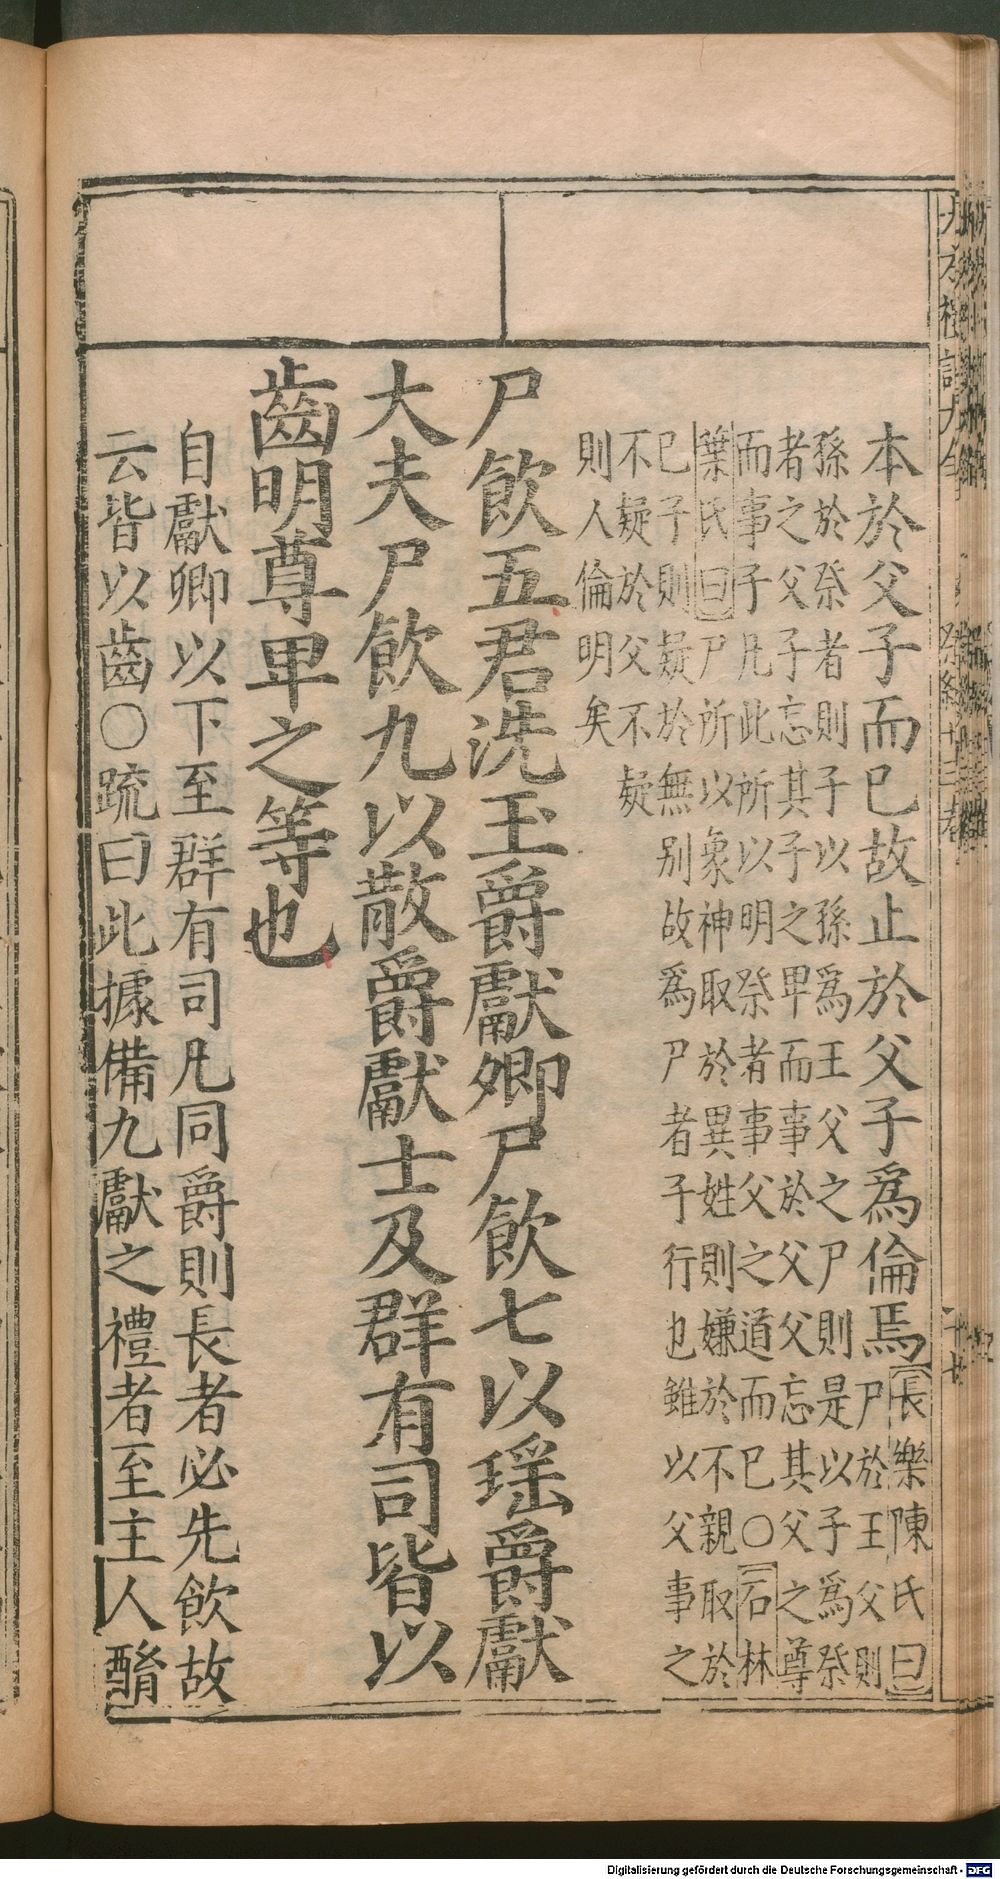 本於父子而已故止於父子爲倫焉長樂陳氏曰
尸於王父則
孫於祭者則子以孫爲王父之尸則是以子爲祭
者之父子忘其子之卑而事於父父忘其父之尊
而事子凡此所以明祭者事父之道而已○石林
葉氏曰尸所以象神取於異姓則嫌於不親取於
已子則疑於無别故爲尸者子行也雖以父事之
不疑於父不疑
則人倫明矣
尸飲五君洗玉爵獻卿尸飲七以瑶爵獻
大夫尸飲九以散爵獻士及群有司皆以
齒明尊卑之等也
自獻卿以下至群有司凡同爵則長者必先飲故
云皆以齒○疏曰此據備九獻之禮者至主人酳
Digitalisierung gefördert durch die Deutsche Forschungsgemeinschaft - DFG